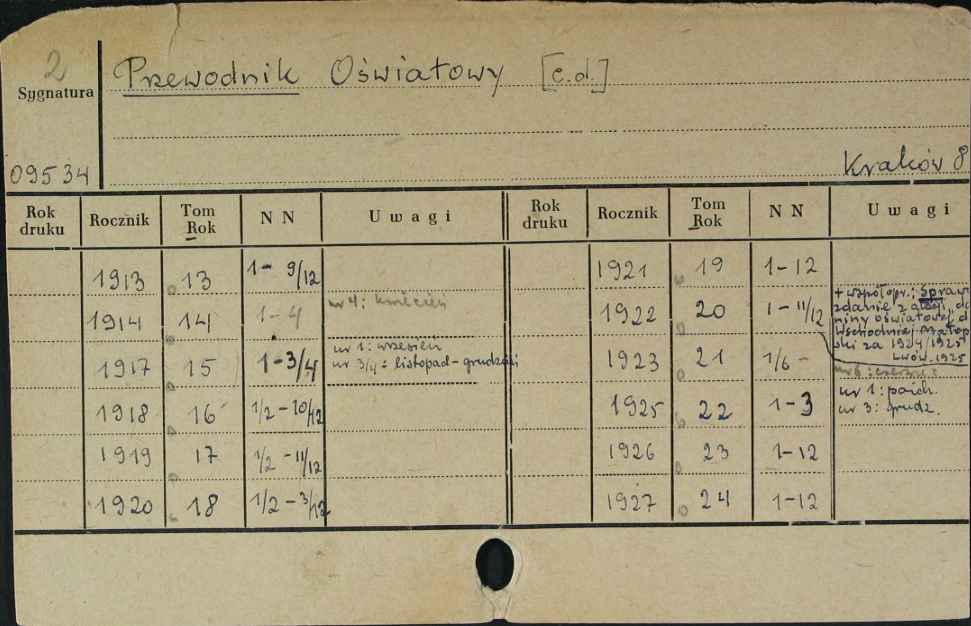 2
Sygnatura
Przewodnik Oświatowy [c.d.]
09534
Kraków 8
Rok druku Rocznik Tom Rok N N Uwagi Rok druku Rocznik Tom Rok N N Uwagi
1913 13 1 - 9/12
1914 14 1 - 4 nr 4: kwiecień
1917 15 1 - 3/4 nr 1: wrzesień
nr 3/4: listopad - grudzień
1918 16 1/2 - 10/12
1919 17 1/2 - 11/12
1920 18 1/2 -
1921 19 1-12
1922 20 1 - 11/12 + współopr.: Spraw
zdanie z
oświatowej
Wschodniej Małop
ski za 1924/1925
Lwów. 1925
1923 21 1/6 -
1925 22 1-3 nr 1: paźdz.
nr 3: grudz.
1926 23 1-12
1927 24 1-12